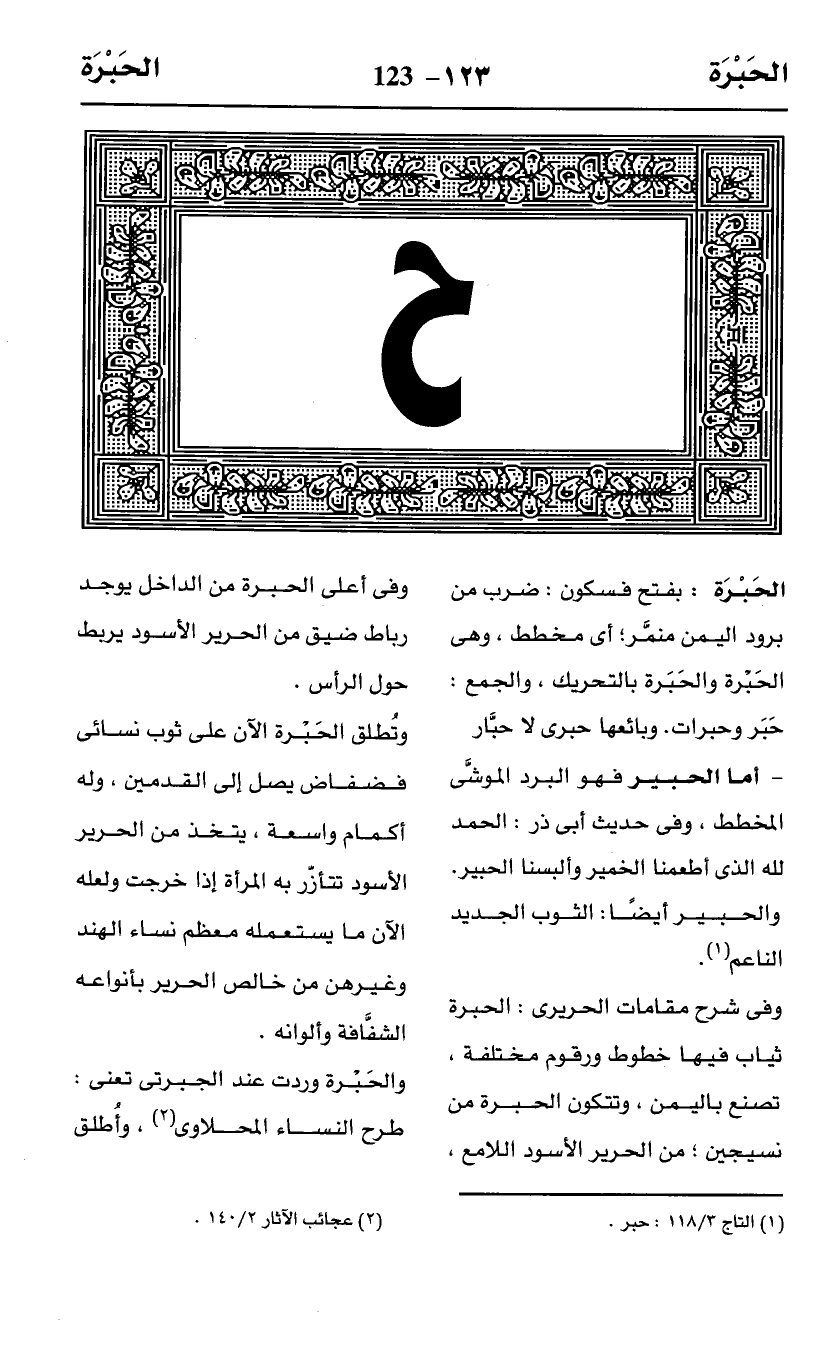 الحَبْرَة
١٢٣ - 123
الحَبْرَة
ح
الحَبْرَة : بفتح فسكون : ضرب من
برود اليمن منمَّر؛ أى مخطط ، وهى
الحَبْرة والحَبَرة بالتحريك ، والجمع :
حَبَر وحبرات. وبائعها حبرى لا حبَّار
- أما الحبير فهو البرد الموشَّى
المخطط ، وفى حديث أبى ذر : الحمد
لله الذى أطعمنا الخمير وألبسنا الحبير.
والحبير أيضًا: الثوب الجديد
الناعم(١).
وفى شرح مقامات الحريرى : الحبرة
ثياب فيها خطوط ورقوم مختلفة ،
تصنع باليمن ، وتتكون الحبرة من
نسيجين ؛ من الحرير الأسود اللامع ،
وفى أعلى الحبرة من الداخل يوجد
رباط ضيق من الحرير الأسود يربط
حول الرأس .
وتُطلق الحَبْرة الآن على ثوب نسائى
فضفاض يصل إلى القدمين ، وله
أكمام واسعة ، يتخذ من الحرير
الأسود تتأزّر به المرأة إذا خرجت ولعله
الآن ما يستعمله معظم نساء الهند
وغيرهن من خالص الحرير بأنواعه
الشفَّافة وألوانه .
والحَبْرة وردت عند الجبرتى تعنى :
طرح النساء المحلاوى(٢) ، وأُطلق
(١) التاج ١١٨/٣ : حبر .
(٢) عجائب الآثار ١٤٠/٢ .